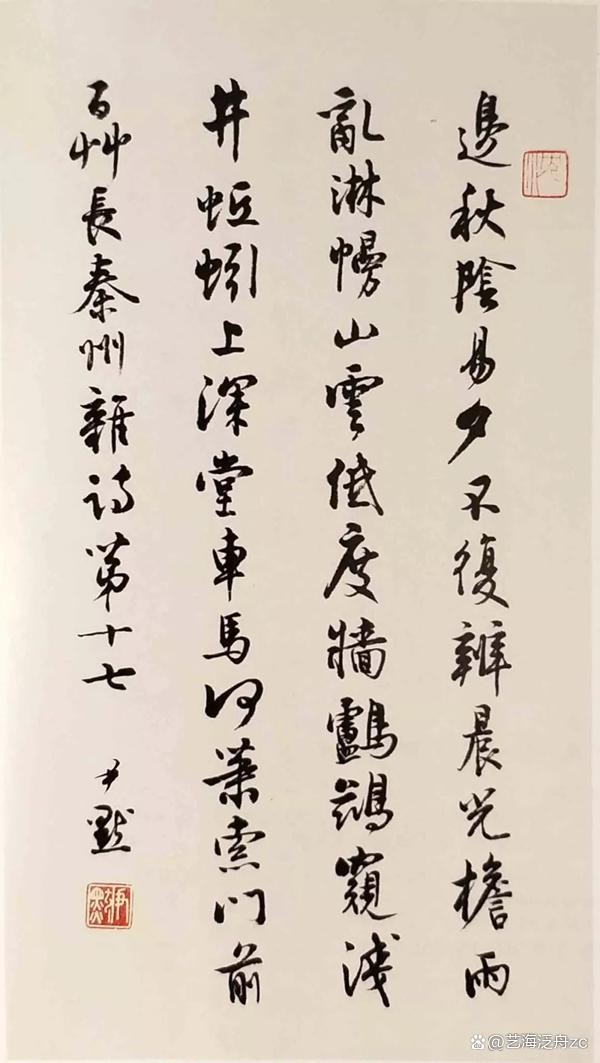 邊秋陰易夕不復辨晨光檐雨
亂淋幔山雲低度墻鸕鷀窺淺
井蚯蚓上深堂車馬何蕭索門前
百艸長秦州雜詩第十七
尹默
尹默
百家号/艺海泛舟zc